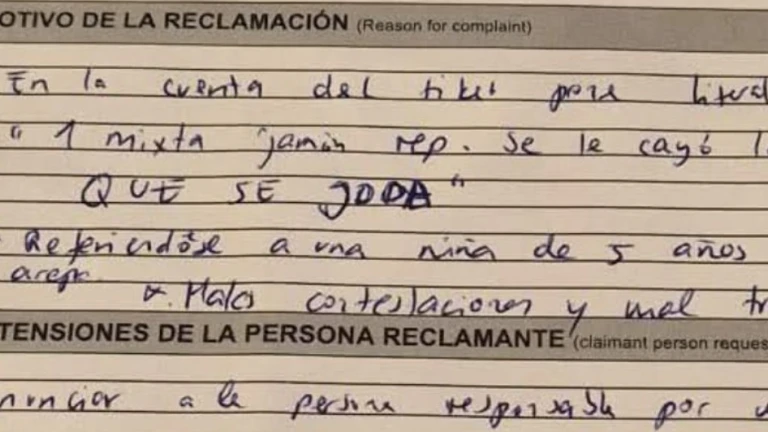 OTIVO DE LA RECLAMACIÓN (Reason for complaint)
En la cuenta del tiket pone literal
" 1 mixta jamón rep. se le cayó l
QUE SE JODA "
Refieriendóse a una niña de 5 años
arepa
x. Malas contestaciones y mal tr
TENSIONES DE LA PERSONA RECLAMANTE (claimant person reques
nunciar a la persona responsable por